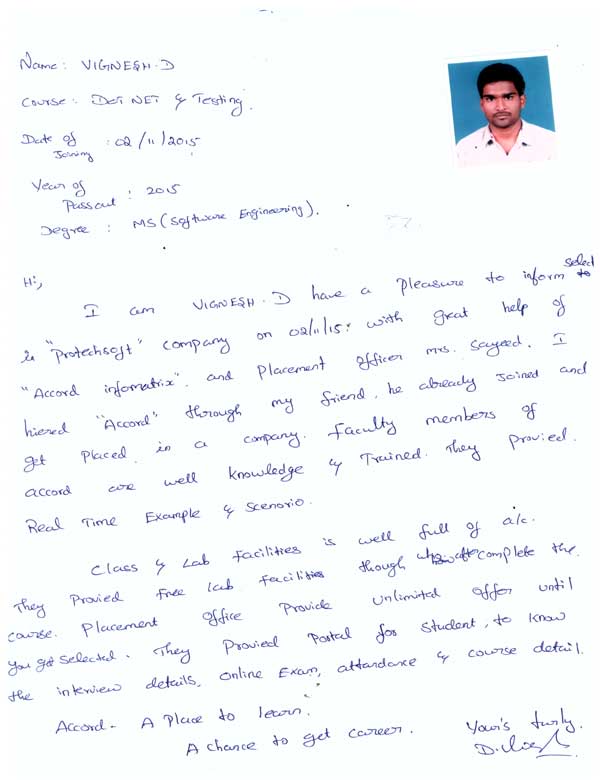 Name: VIGNESH.D
Course: Dot NET & Testing.
Date of Joining : 02/11/2015
Year of Passout : 2015
Degree : MS (Software Engineering).
Hi,
I am VIGNESH.D have a pleasure to inform select
"Protechsoft" company on 02/11/15. with great help of
"Accord infomatrix". and Placement Officer mrs. Sayeed. I
hiered "Accord" through my friend. he already Joined and
get Placed. in a company. faculty members of
accord are well knowledge & Trained. They Provied.
Real Time Example & Scenorio.
Class & Lab facilities is well full of a/c.
They Provied free lab facilities though after complete the
course. Placement office Provide unlimited offer until
you get selected. They Provied Portal for student, to know
the interview details, online Exam, attandance & course detail.
Accord - A Place to learn.
A chance to get career.
Your's turly.